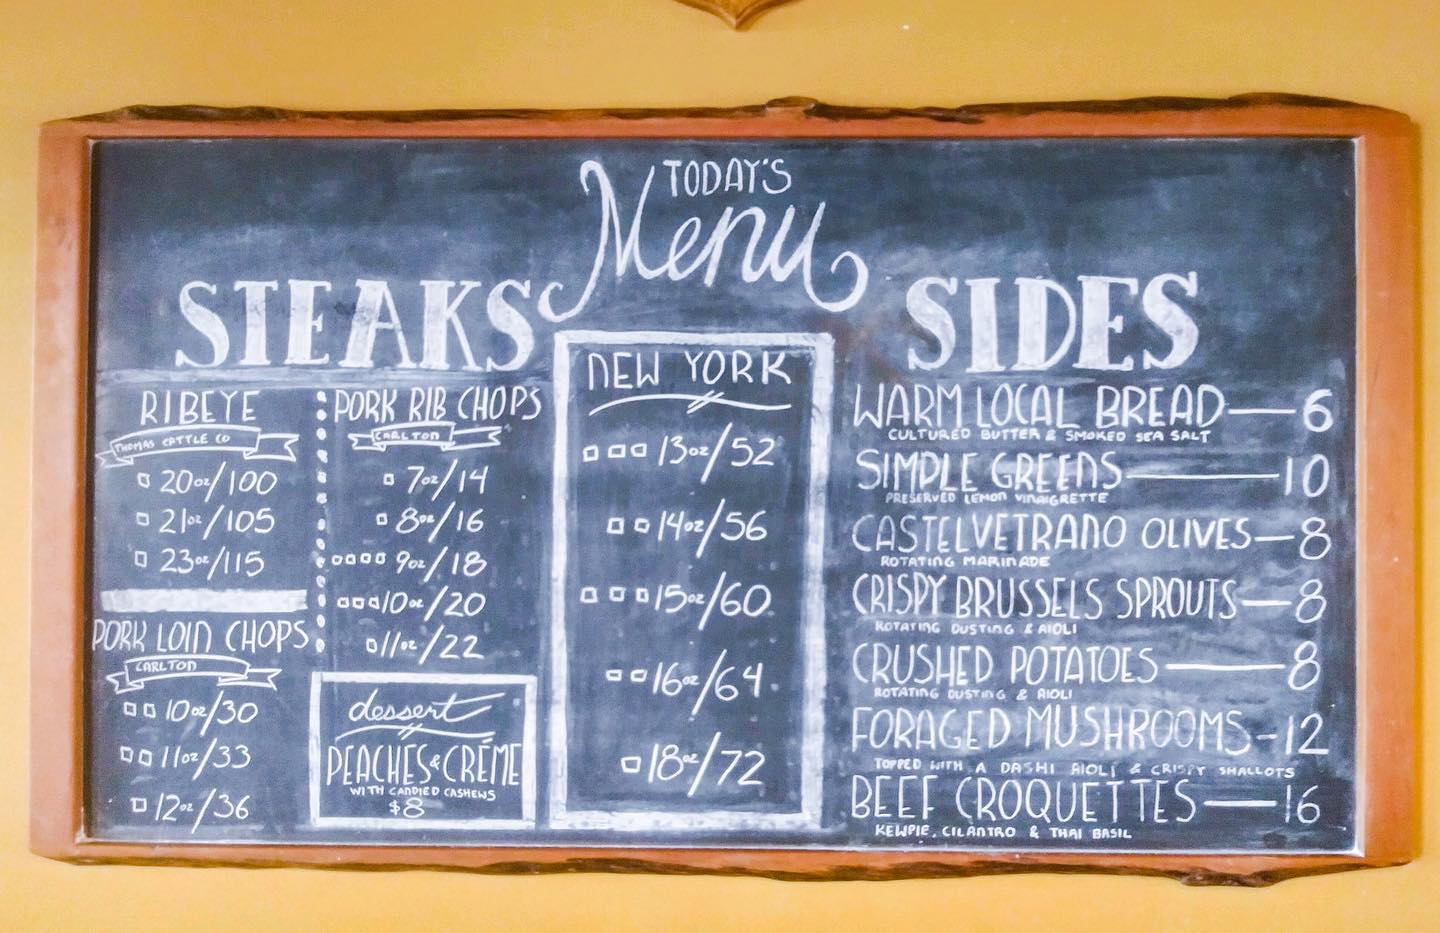 TODAY'S
Menu
STEAKS
RIBEYE
THOMAS CATTLE CO
20oz/100
21oz/105
23oz/115
PORK LOIN CHOPS
CARLTON
10oz/30
11oz/33
12oz/36
PORK RIB CHOPS
CARLTON
7oz/14
8oz/16
9oz/18
10oz/20
11oz/22
dessert
PEACHES & CRÉME
WITH CANDIED CASHEWS
$8
NEW YORK
13oz/52
14oz/56
15oz/60
16oz/64
18oz/72
SIDES
WARM LOCAL BREAD — 6
CULTURED BUTTER & SMOKED SEA SALT
SIMPLE GREENS — 10
PRESERVED LEMON VINAIGRETTE
CASTELVETRANO OLIVES — 8
ROTATING MARINADE
CRISPY BRUSSELS SPROUTS — 8
ROTATING DUSTING & AIOLI
CRUSHED POTATOES — 8
ROTATING DUSTING & AIOLI
FORAGED MUSHROOMS - 12
TOPPED WITH A DASHI AIOLI & CRISPY SHALLOTS
BEEF CROQUETTES — 16
KEWPIE, CILANTRO & THAI BASIL